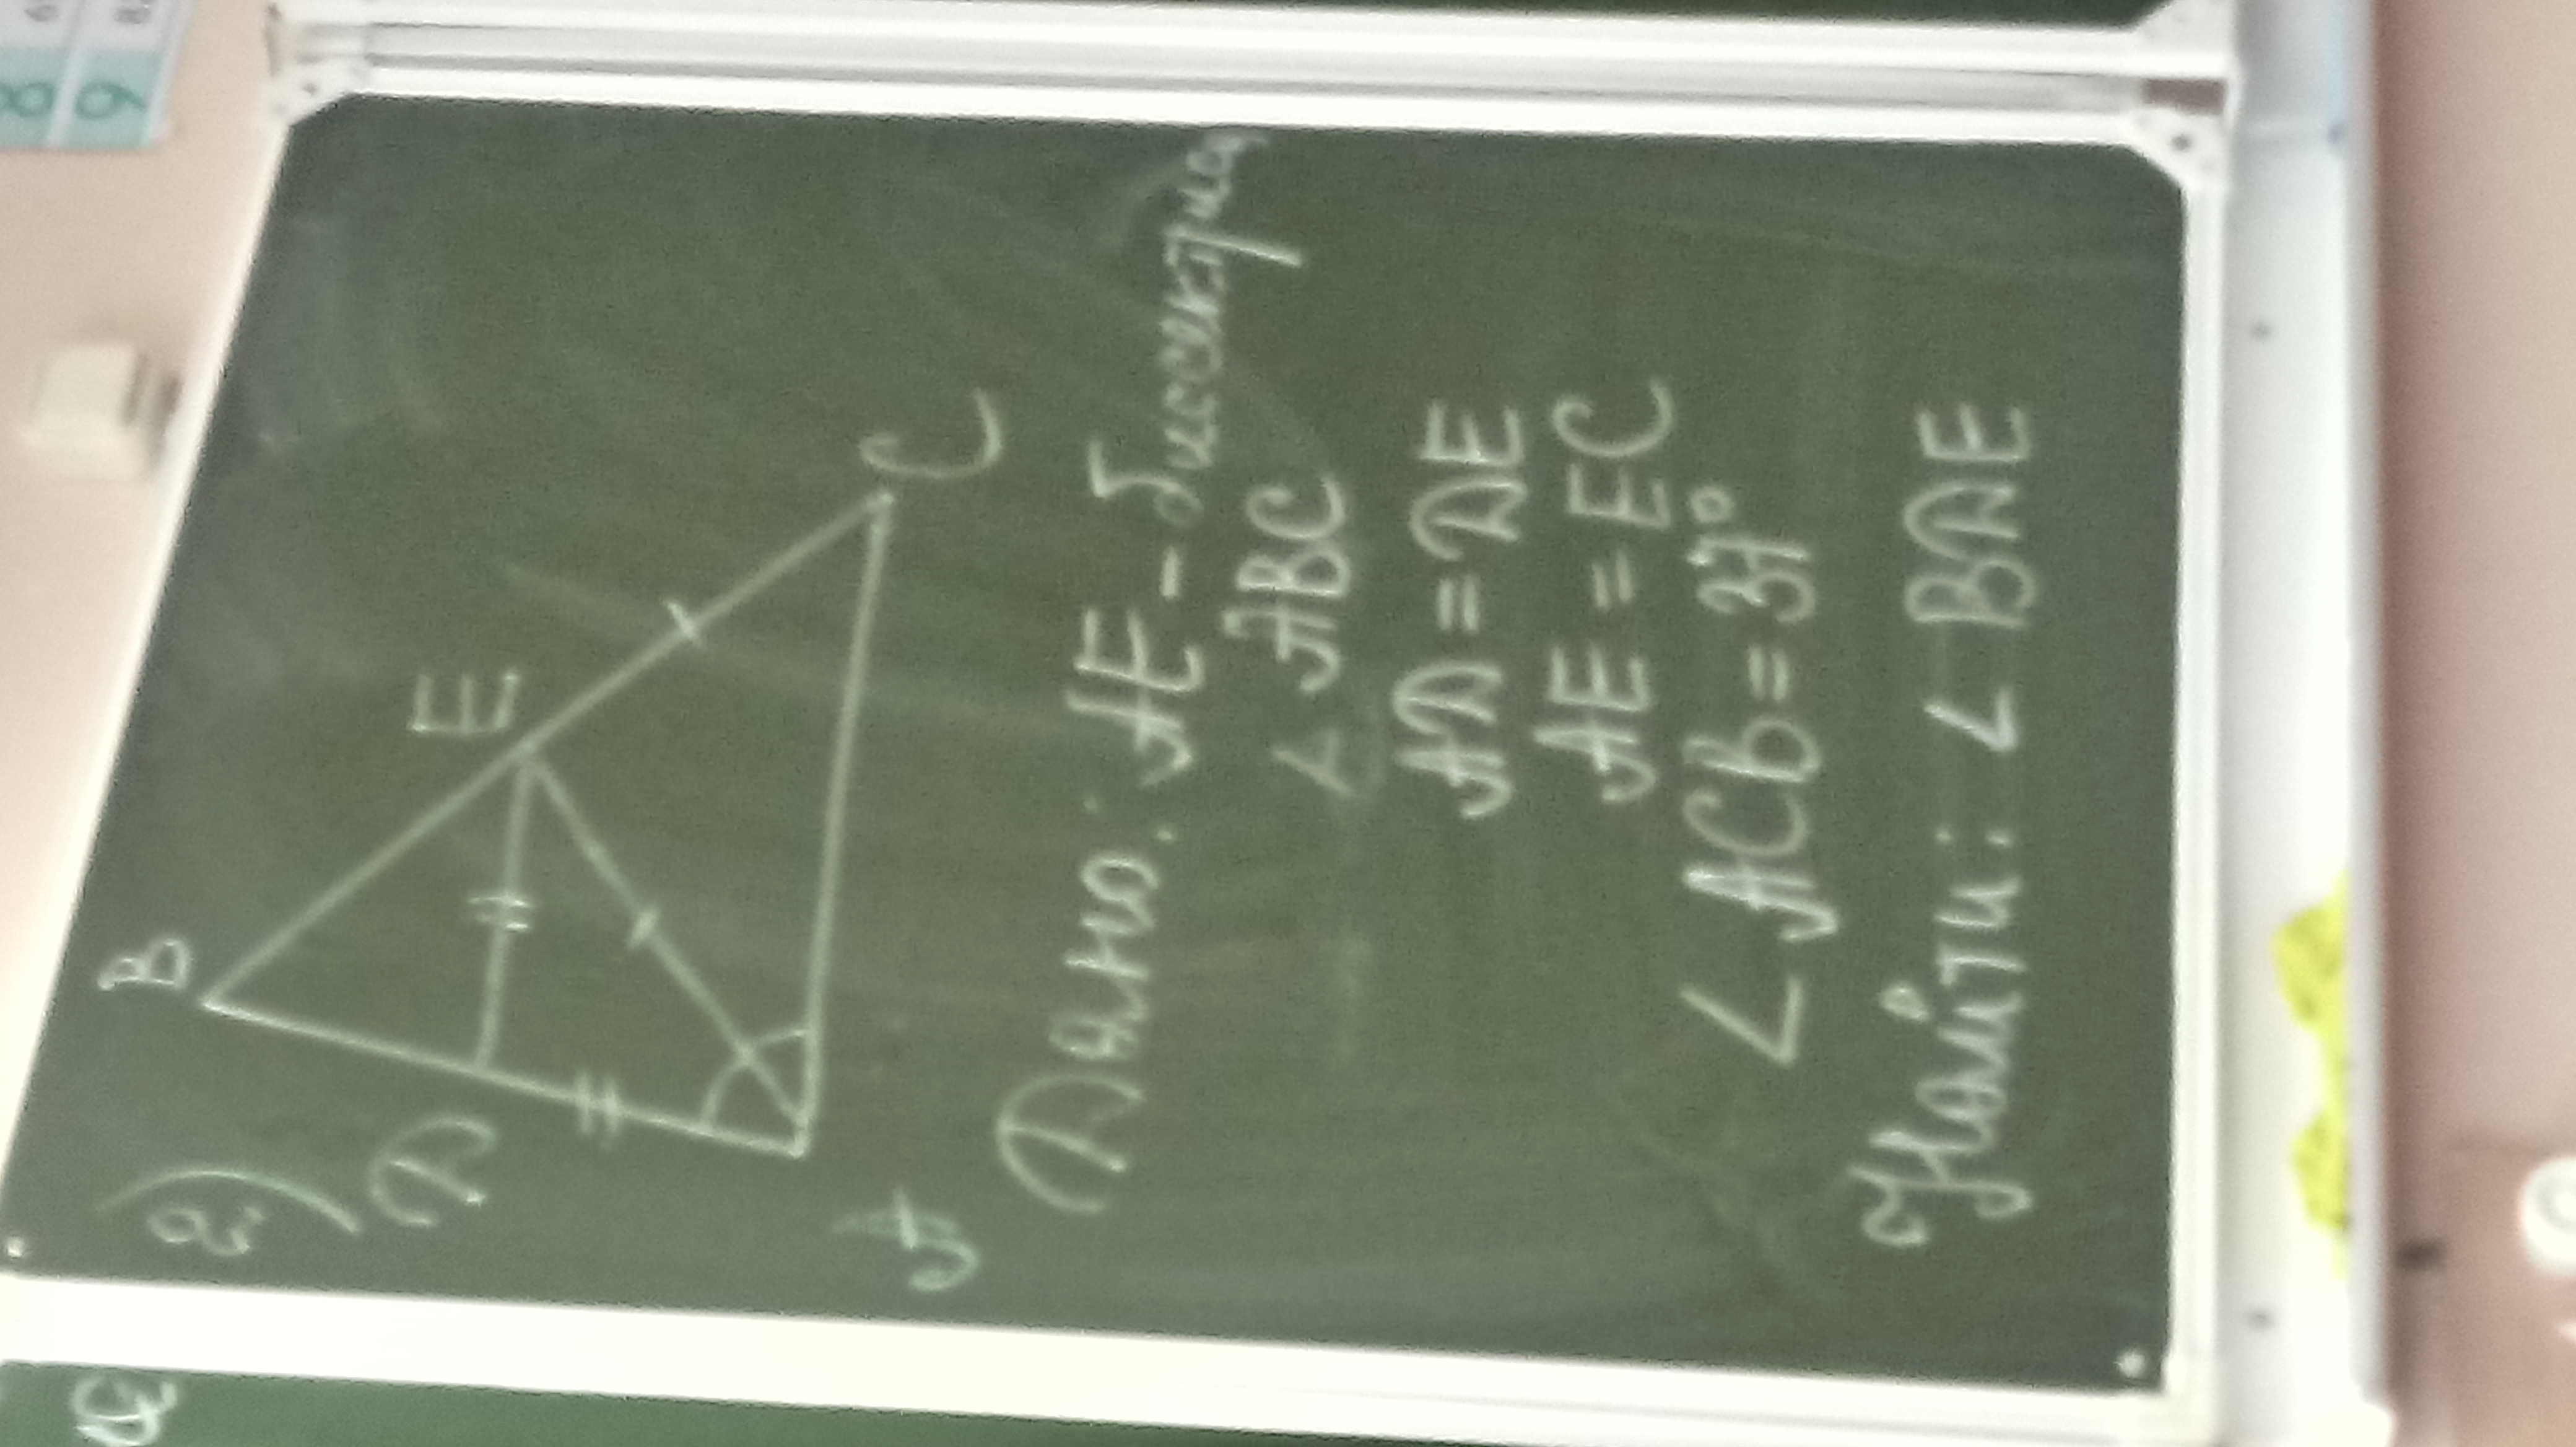 2)
B
Д
E
A
C
Дано: AE - биссектриса
△ ABC
AД = ДE
AE = EC
∠ ACB = 37°
Найти: ∠ BДE